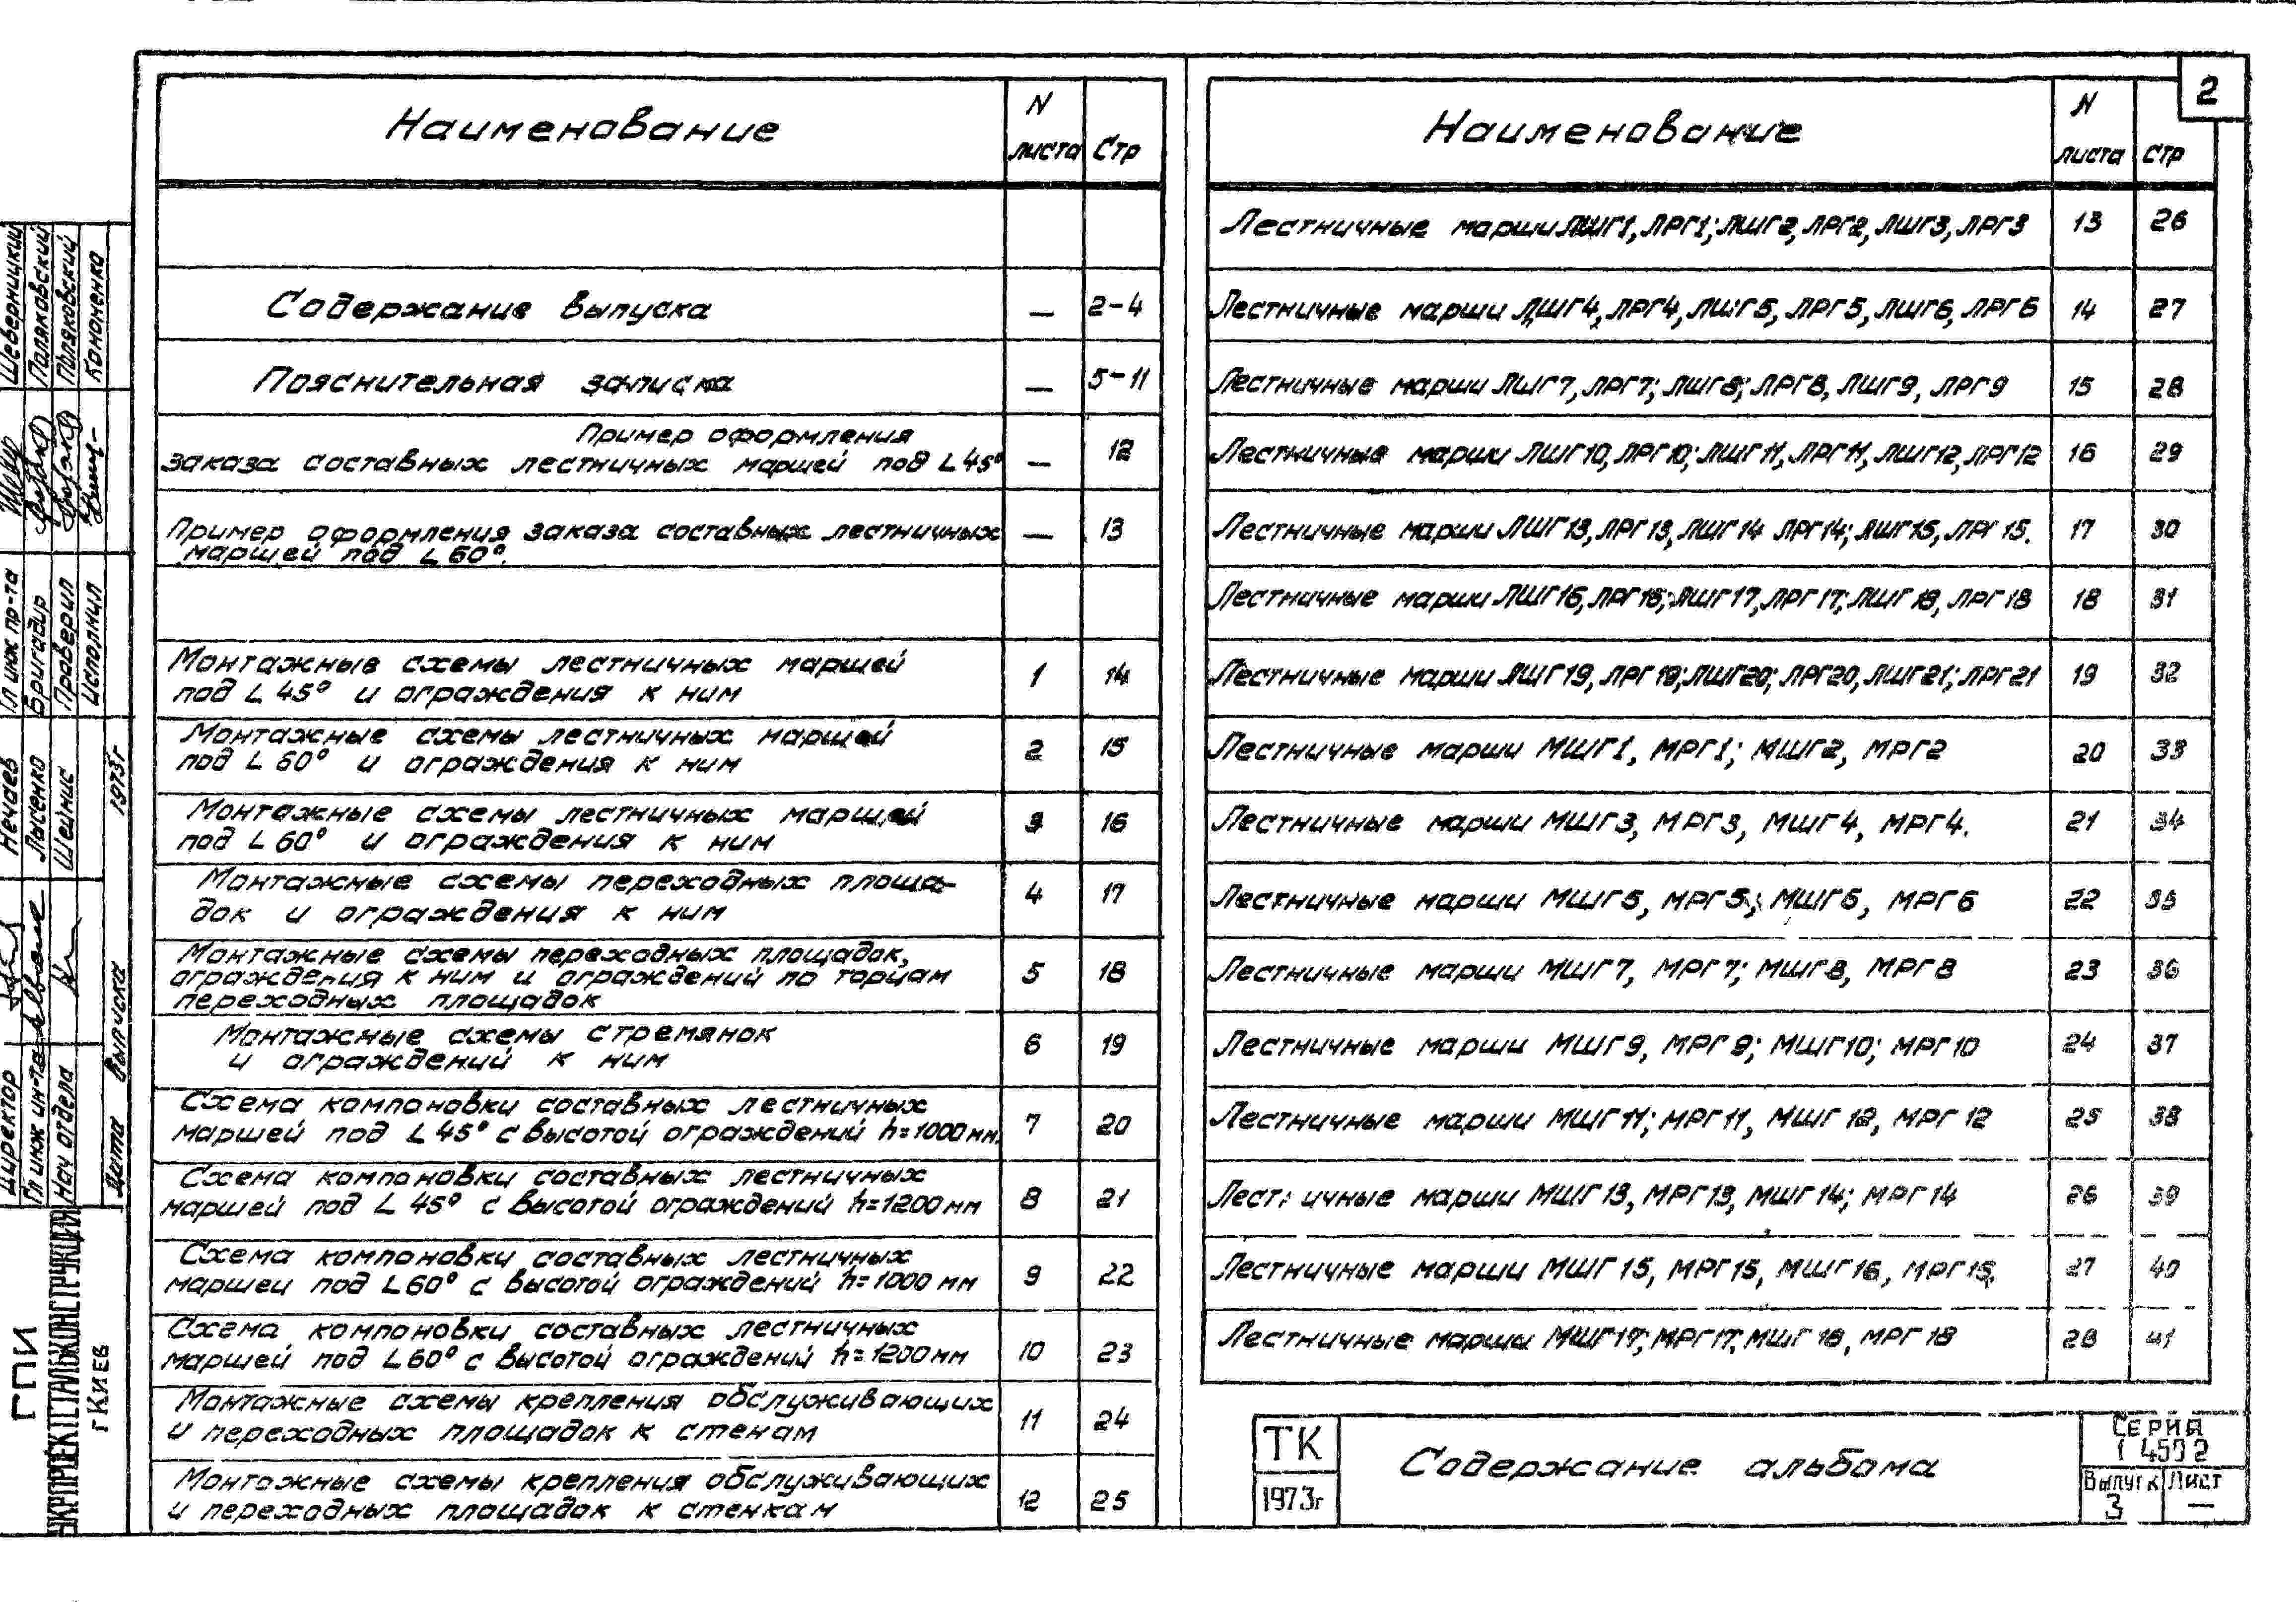 2
Наименование N листа Стр
Содержание выпуска — 2-4
Пояснительная записка — 5-11
Пример оформления
заказа составных лестничных маршей под L 45° — 12
Пример оформления заказа составных лестничных — 13
маршей под L 60°.
Монтажные схемы лестничных маршей
под L 45° и ограждения к ним 1 14
Монтажные схемы лестничных маршей
под L 60° и ограждения к ним 2 15
Монтажные схемы лестничных маршей
под L 60° и ограждения к ним 3 16
Монтажные схемы переходных площа-
док и ограждения к ним 4 17
Монтажные схемы переходных площадок,
ограждения к ним и ограждений по торцам 5 18
переходных площадок
Монтажные схемы стремянок
и ограждений к ним 6 19
Схема компоновки составных лестничных
маршей под L 45° с высотой ограждений h=1000 мм. 7 20
Схема компоновки составных лестничных
маршей под L 45° с высотой ограждений h=1200 мм 8 21
Схема компоновки составных лестничных
маршей под L 60° с высотой ограждений h=1000 мм 9 22
Схема компоновки составных лестничных
маршей под L 60° с высотой ограждений h=1200 мм 10 23
Монтажные схемы крепления обслуживающих
и переходных площадок к стенам 11 24
Монтажные схемы крепления обслуживающих
и переходных площадок к стенкам 12 25
Наименование N листа Стр
Лестничные марши ЛШГ1, ЛРГ1; ЛШГ2, ЛРГ2, ЛШГ3, ЛРГ3 13 26
Лестничные марши ЛШГ4, ЛРГ4, ЛШГ5, ЛРГ5, ЛШГ6, ЛРГ6 14 27
Лестничные марши ЛШГ7, ЛРГ7; ЛШГ8; ЛРГ8, ЛШГ9, ЛРГ9 15 28
Лестничные марши ЛШГ10, ЛРГ10; ЛШГ11, ЛРГ11, ЛШГ12, ЛРГ12 16 29
Лестничные марши ЛШГ13, ЛРГ13, ЛШГ14 ЛРГ14; ЛШГ15, ЛРГ15. 17 30
Лестничные марши ЛШГ16, ЛРГ16; ЛШГ17, ЛРГ17; ЛШГ18, ЛРГ18 18 31
Лестничные марши ЛШГ19, ЛРГ19; ЛШГ20; ЛРГ20, ЛШГ21; ЛРГ21 19 32
Лестничные марши МШГ1, МРГ1; МШГ2, МРГ2 20 33
Лестничные марши МШГ3, МРГ3, МШГ4, МРГ4. 21 34
Лестничные марши МШГ5, МРГ5; МШГ6, МРГ6 22 35
Лестничные марши МШГ7, МРГ7; МШГ8, МРГ8 23 36
Лестничные марши МШГ9, МРГ9; МШГ10; МРГ10 24 37
Лестничные марши МШГ11; МРГ11, МШГ12, МРГ12 25 38
Лестничные марши МШГ13, МРГ13, МШГ14; МРГ14 26 39
Лестничные марши МШГ15, МРГ15, МШГ16, МРГ16, 27 40
Лестничные марши МШГ17; МРГ17, МШГ18, МРГ18 28 41
ТК
1973г
Содержание альбома
СЕРИЯ
1 459 2
Выпуск 3
Лист —
Директор Нечаев
Гл инж ин-та Лысенко
Нач отдела Шейнис
Дата выпуска 1973г
Гл инж пр-та Шеверницкий
Бригадир Поляковский
Проверил Поляковский
Исполнил Кононенко
ГПИ
УКРПРОЕКТСТАЛЬКОНСТРУКЦИЯ
г КИЕВ